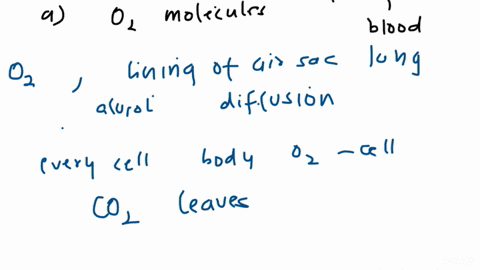 a) O2 molecules
blood
O2, lining of air sac lung
diffusion
every cell body O2 - cell
CO2 leaves